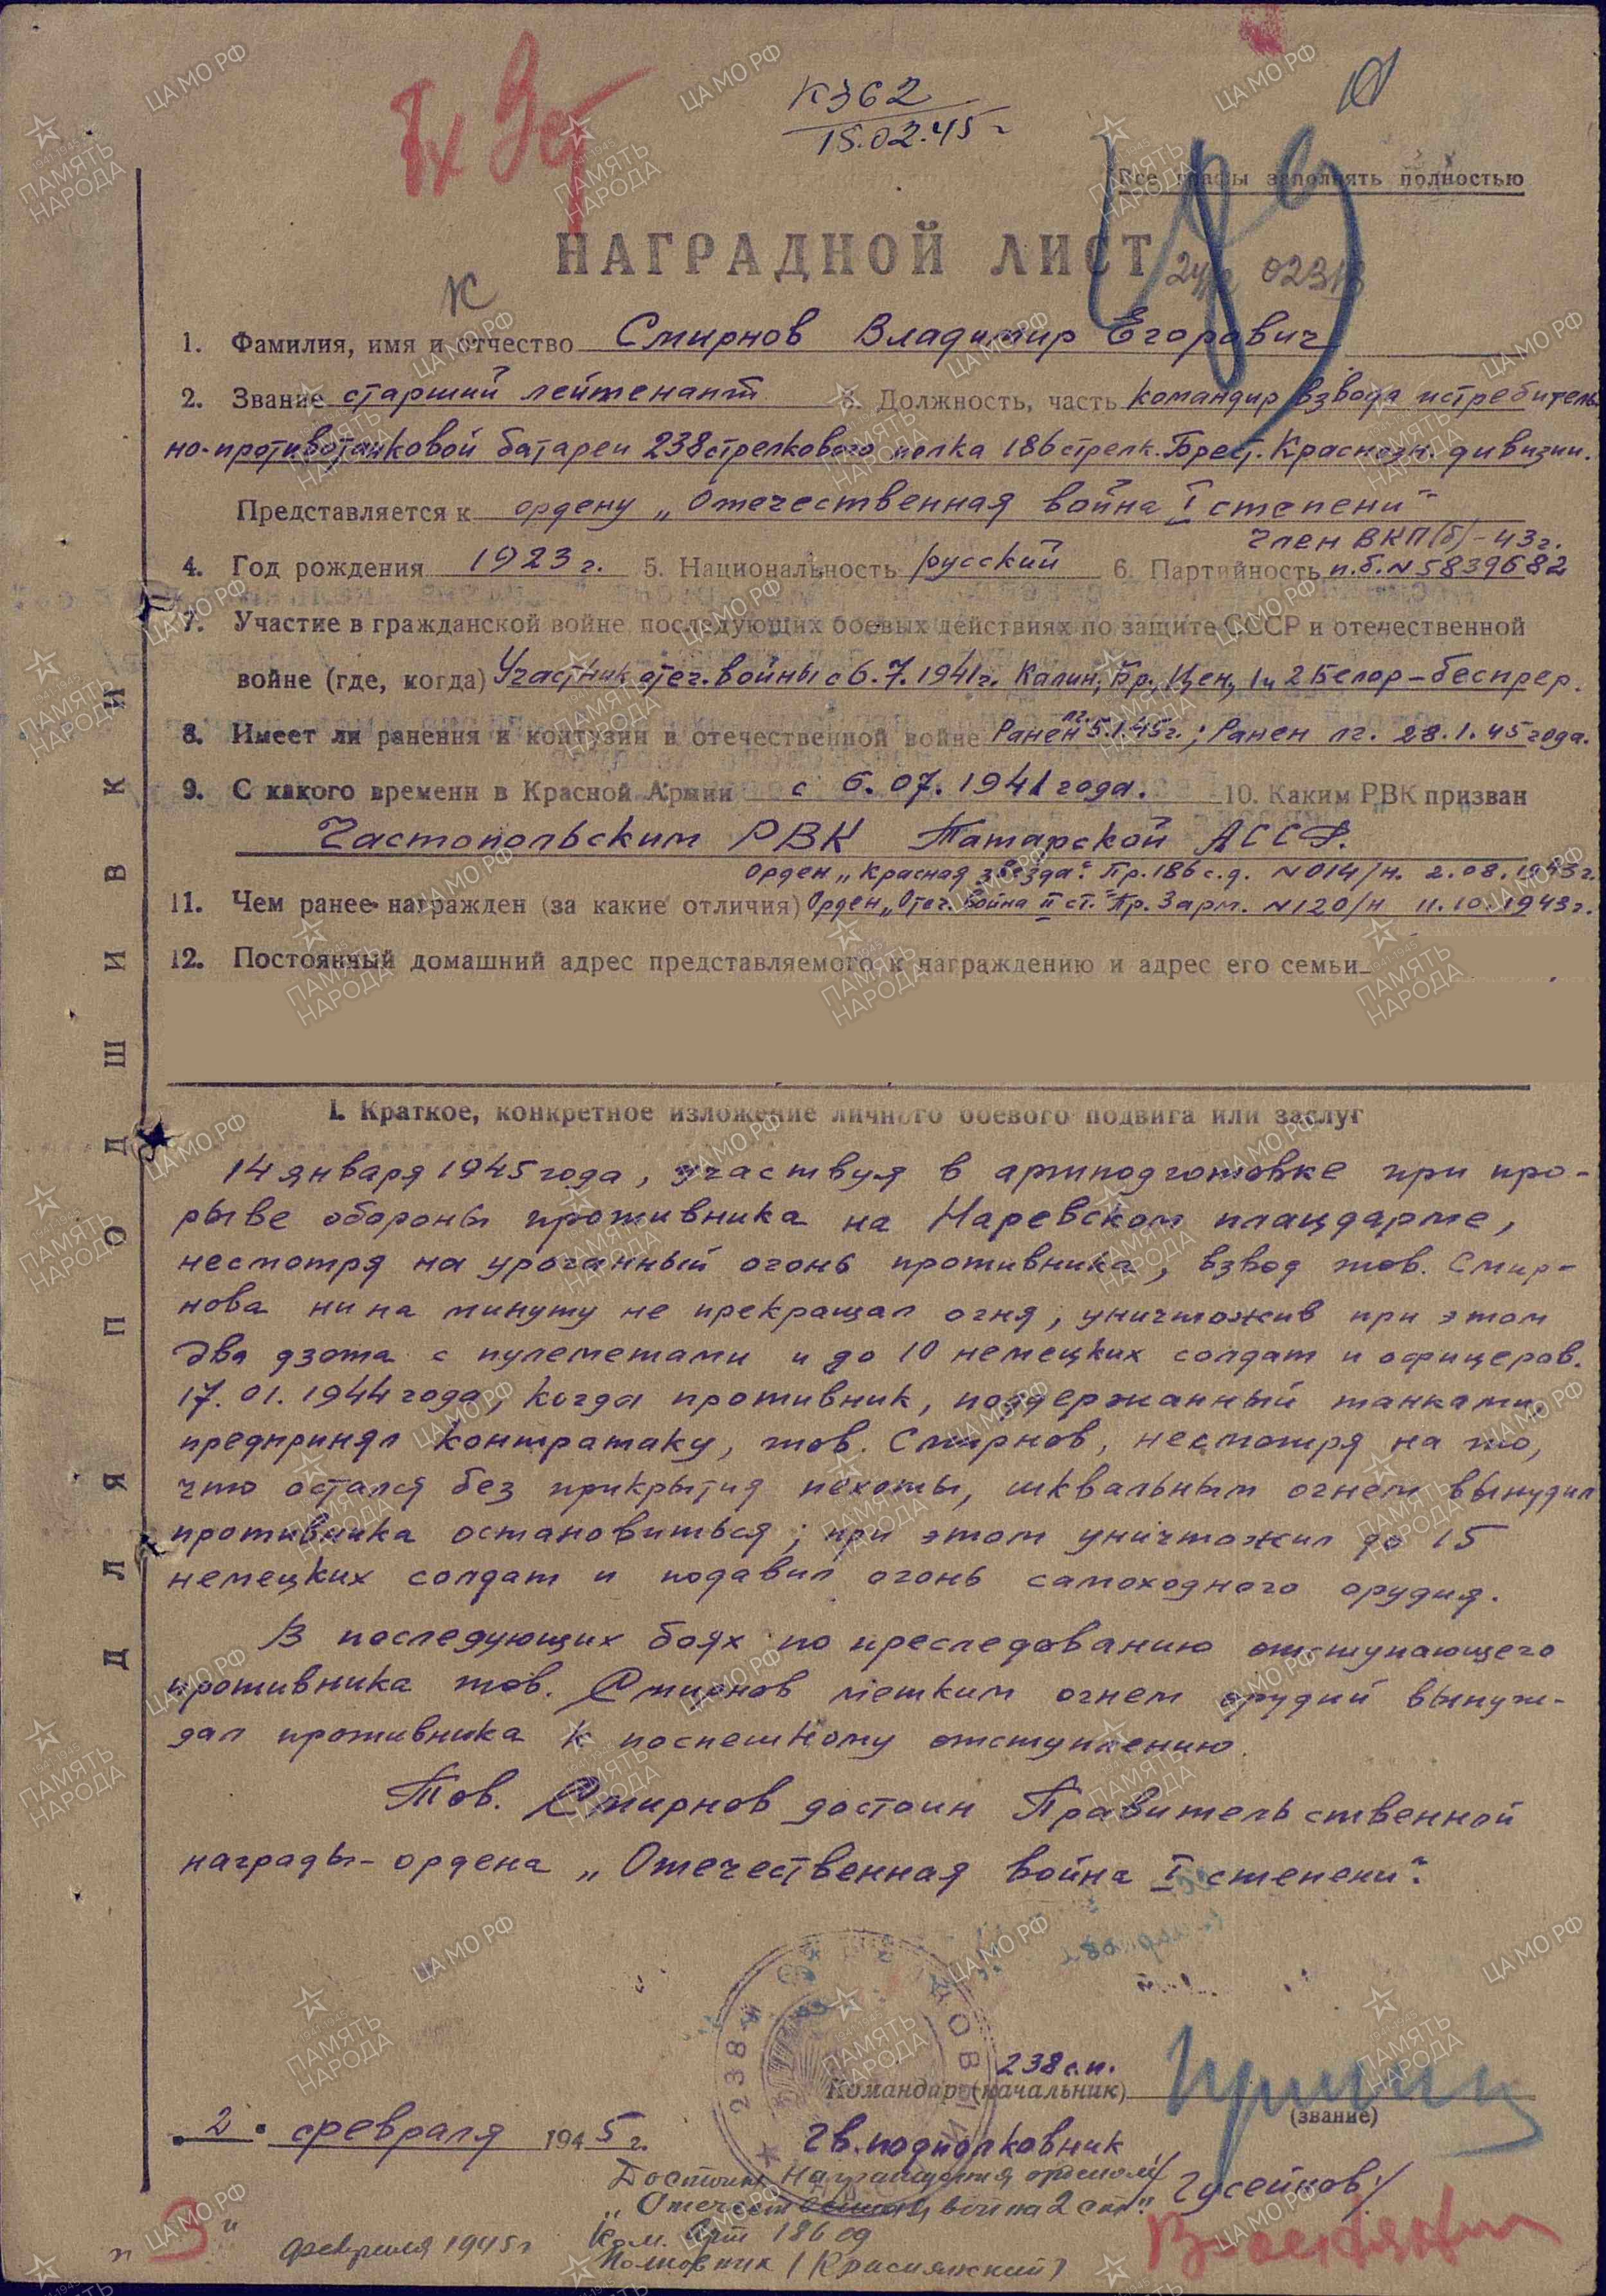 К362
15.02.45 г
Все графы заполнять полностью
НАГРАДНОЙ ЛИСТ
1. Фамилия, имя и отчество Смирнов Владимир Егорович
2. Звание старший лейтенант 3. Должность, часть командир взвода истребитель-
но-противотанковой батареи 238 стрелкового полка 186 стрелк. Брест. Краснозн. дивизии.
Представляется к ордену „Отечественная война I степени"
Член ВКП(б)-43г.
4. Год рождения 1923 г. 5. Национальность русский 6. Партийность п.б. N 5839682
7. Участие в гражданской войне, последующих боевых действиях по защите СССР и отечественной
войне (где, когда) Участник отеч. войны с 6.7.1941г. Калин, Бр, Цен, 1 и 2 Белор-беспрер.
8. Имеет ли ранения и контузии в отечественной войне Ранен лг. 5.1.45г.; Ранен лг. 28.1.45 года.
9. С какого времени в Красной Армии с 6.07.1941 года. 10. Каким РВК призван
Частопольским РВК Татарской АССР.
Орден „Красная звезда". Пр. 186 с.д. N 014/н. 2.08.1943 г.
11. Чем ранее награжден (за какие отличия) Орден „Отеч. война II ст." Пр. 3 арм. N 120/н 11.10.1943 г.
12. Постоянный домашний адрес представляемого к награждению и адрес его семьи
ДЛЯ ПОДШИВКИ
I. Краткое, конкретное изложение личного боевого подвига или заслуг
14 января 1945 года, участвуя в артподготовке при про-
рыве обороны противника на Наревском плацдарме,
несмотря на ураганный огонь противника, взвод тов. Смир-
нова ни на минуту не прекращал огня, уничтожив при этом
два дзота с пулеметами и до 10 немецких солдат и офицеров.
17.01.1944 года, когда противник, поддержанный танками,
предпринял контратаку, тов. Смирнов, несмотря на то,
что остался без прикрытия пехоты, шквальным огнем вынудил
противника остановиться; при этом уничтожил до 15
немецких солдат и подавил огонь самоходного орудия.
В последующих боях по преследованию отступающего
противника тов. Смирнов метким огнем орудий вынуж-
дал противника к поспешному отступлению.
Тов. Смирнов достоин Правительственной
награды - ордена „Отечественная война I степени".
238 с.п.
Командир (начальник)
(звание)
„2" февраля 1945 г.
Гв. подполковник /Гусейнов/
Достоин награждения орденом
„Отечествен война 2 ст"
Ком. Арт 186 сд
Полковник (Красиянский)
„9" февраля 1945 г
ЦАМО.РФ
1941-1945
ПАМЯТЬ
НАРОДА